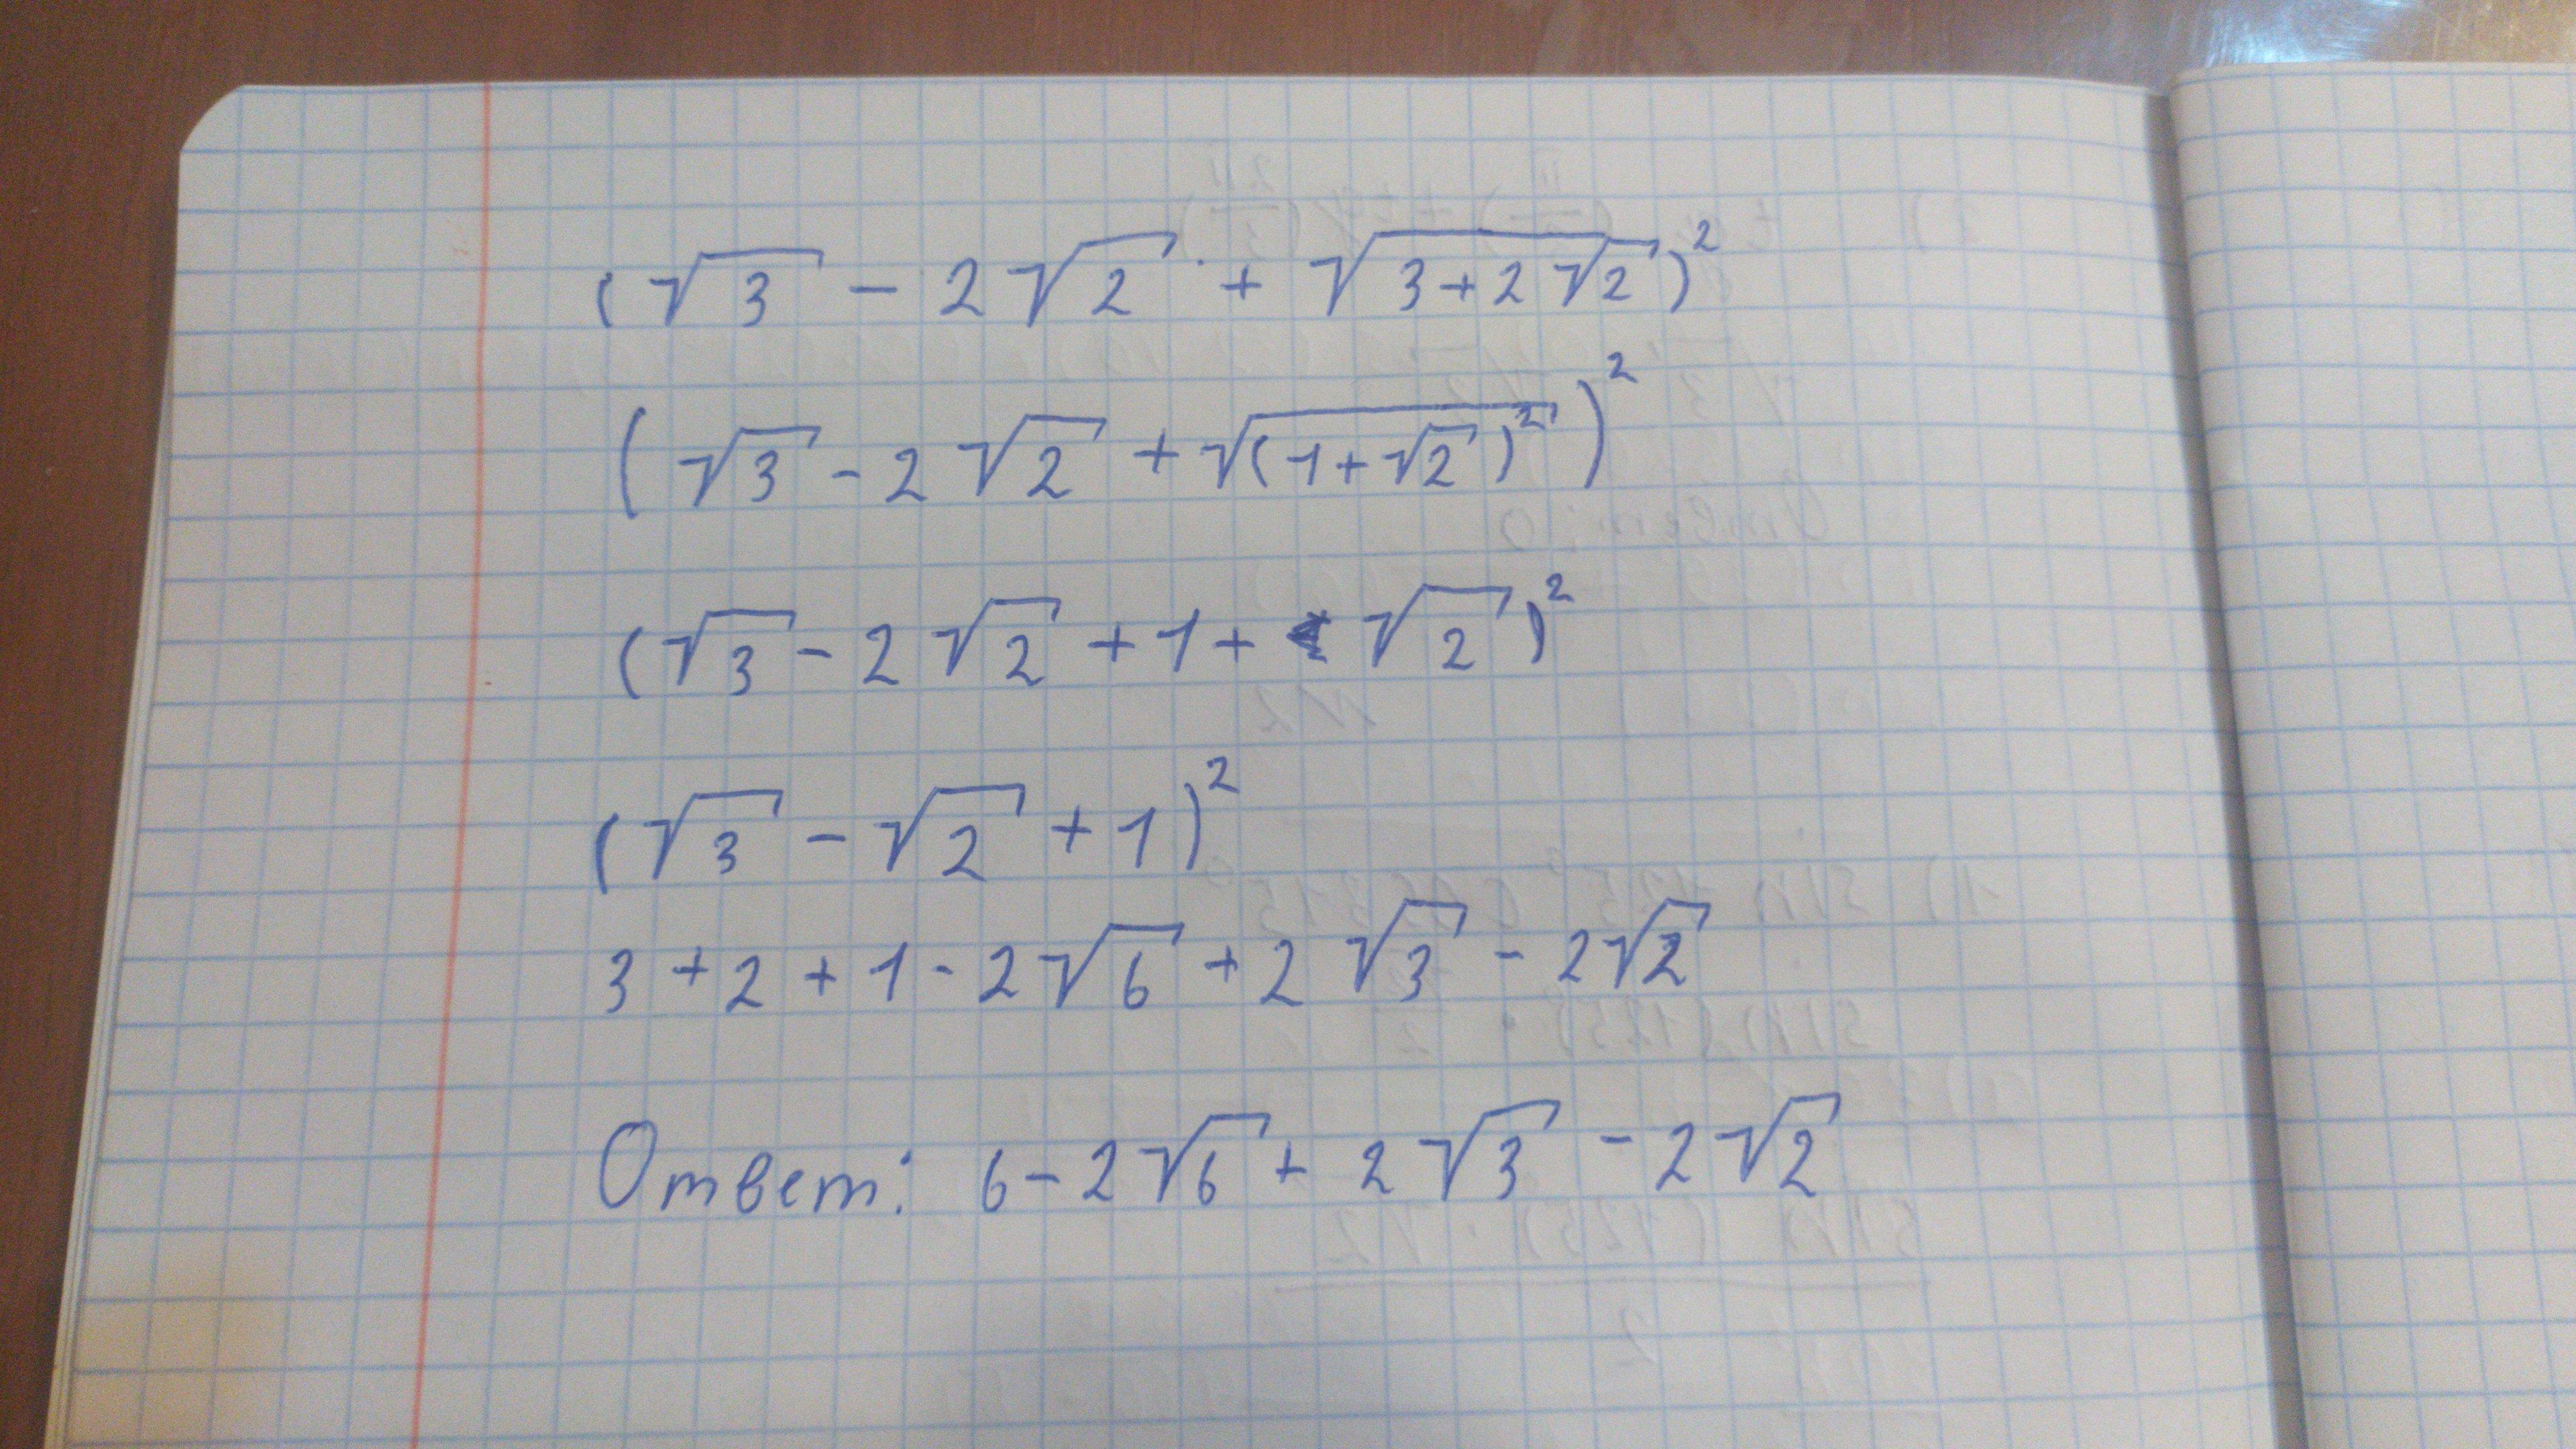 (√3 - 2√2 + √(3+2√2))²
(√3 - 2√2 + √((1+√2)²))²
(√3 - 2√2 + 1 + √2)²
(√3 - √2 + 1)²
3 + 2 + 1 - 2√6 + 2√3 - 2√2
Ответ: 6 - 2√6 + 2√3 - 2√2